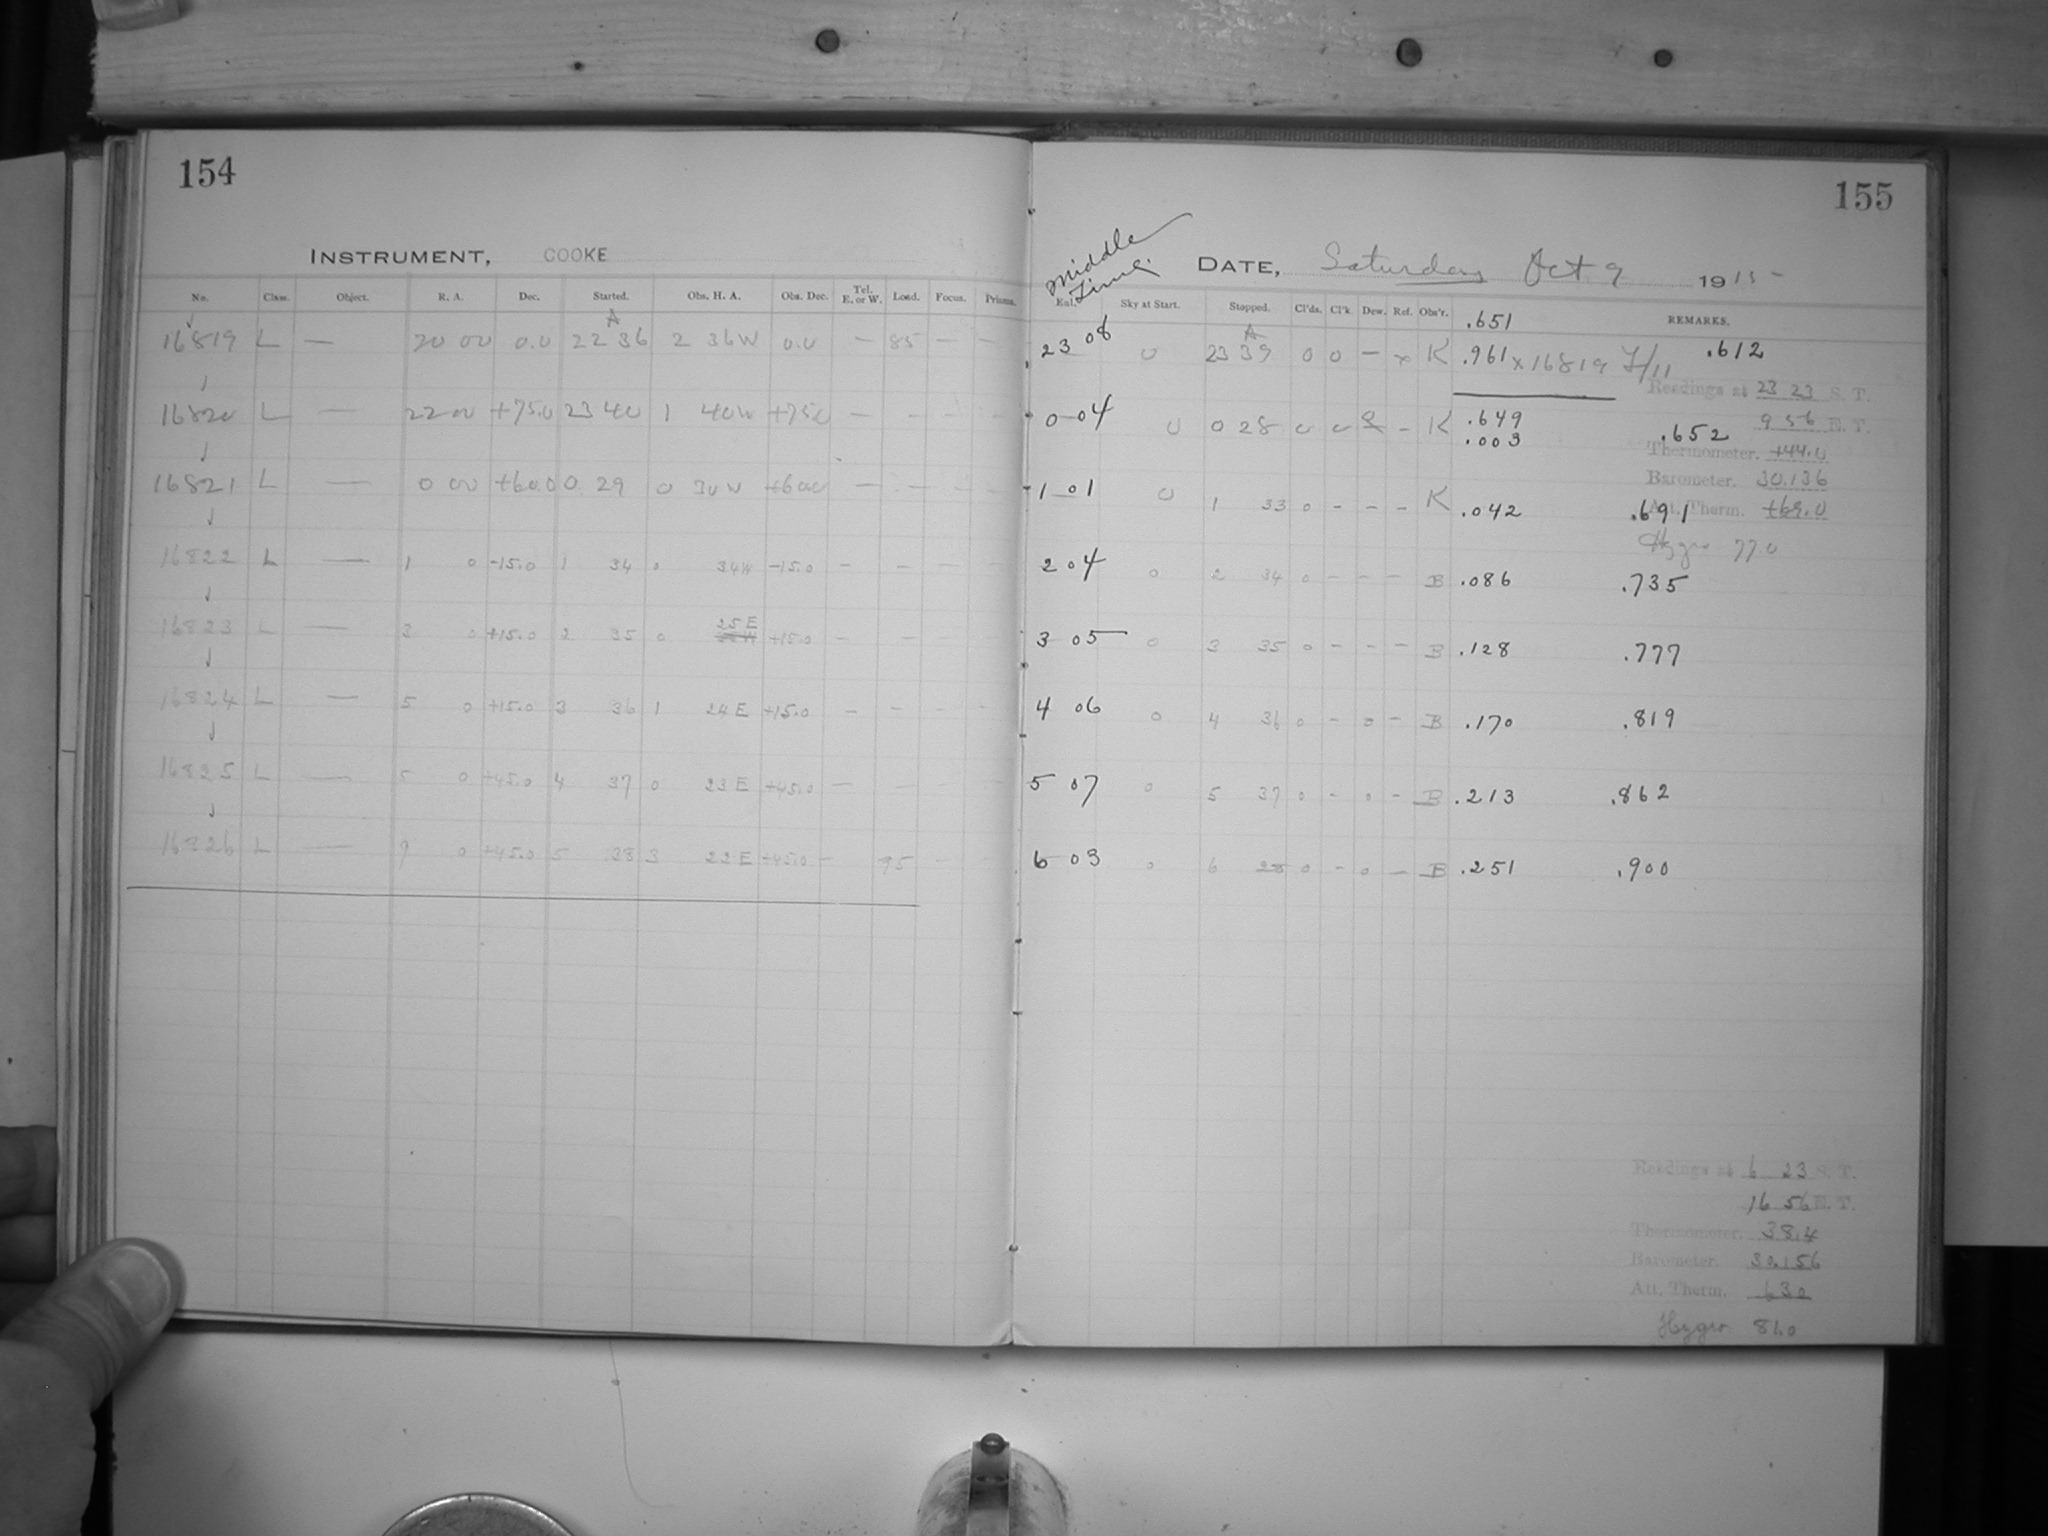 154
155
INSTRUMENT, COOKE
Middle Time.
DATE, Saturday Oct 9 1915
No. Class. Object. R. A. Dec. Started. Obs. H. A. Obs. Dec. Tel. E. or W. Load. Focus. Prisms. Eal. Sky at Start. Stopped. Cl'ds. Cl'k. Dew. Ref. Obs'r. .651 REMARKS.
A A
16819 L — 20 00 0.0 22 36 2 36W 0.0 — 85 — — 23 08 0 23 39 0 0 — x K .961 x 16819 .612
Readings at 23 23 S. T.
16820 L — 22 00 +75.0 23 40 1 40W +75.0 — — — — 0 04 0 0 28 0 0 — K .649 9 56 E. T.
.003 .652
Thermometer. +44.0
Barometer. 30.136
16821 L — 0 00 +60.0 0 29 0 30W +60.0 — — — — 1 01 0 1 33 0 - - - K .042 .691 Att. Therm. +69.0
Hygro 77.0
16822 L — 1 0 -15.0 1 34 0 34W -15.0 — — — — 2 04 0 2 34 0 - - - B .086 .735
25 E
16823 L — 3 0 +15.0 2 35 0 +15.0 — — 3 05 0 3 35 0 - - - B .128 .777
16824 L — 5 0 +15.0 3 36 1 24 E +15.0 — — — — 4 06 0 4 36 0 - 0 - B .170 .819
16825 L — 5 0 +45.0 4 37 0 23 E +45.0 — — — — 5 07 0 5 37 0 - 0 - B .213 .862
16826 L — 9 0 +45.0 5 38 3 22 E +45.0 — 95 — — 6 03 0 6 28 0 - 0 - B .251 .900
Readings at 6 23 S. T.
16 56 E. T.
Thermometer. 38.4
Barometer. 30.156
Att. Therm. 63.0
Hygro 81.0